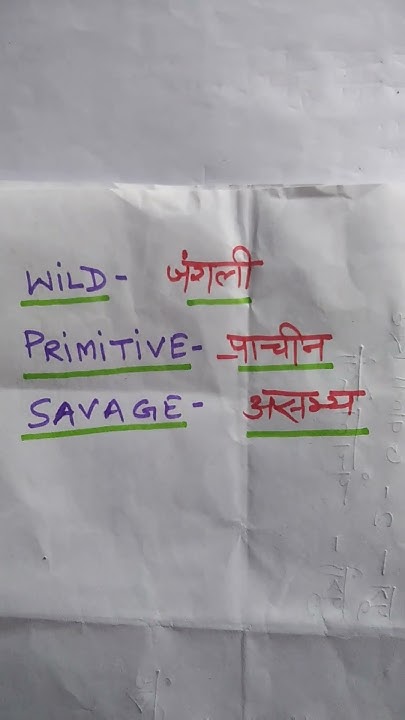 WiLD - जंगली
PRiMiTiVE - पाचीन
SAVAGE - असभ्य